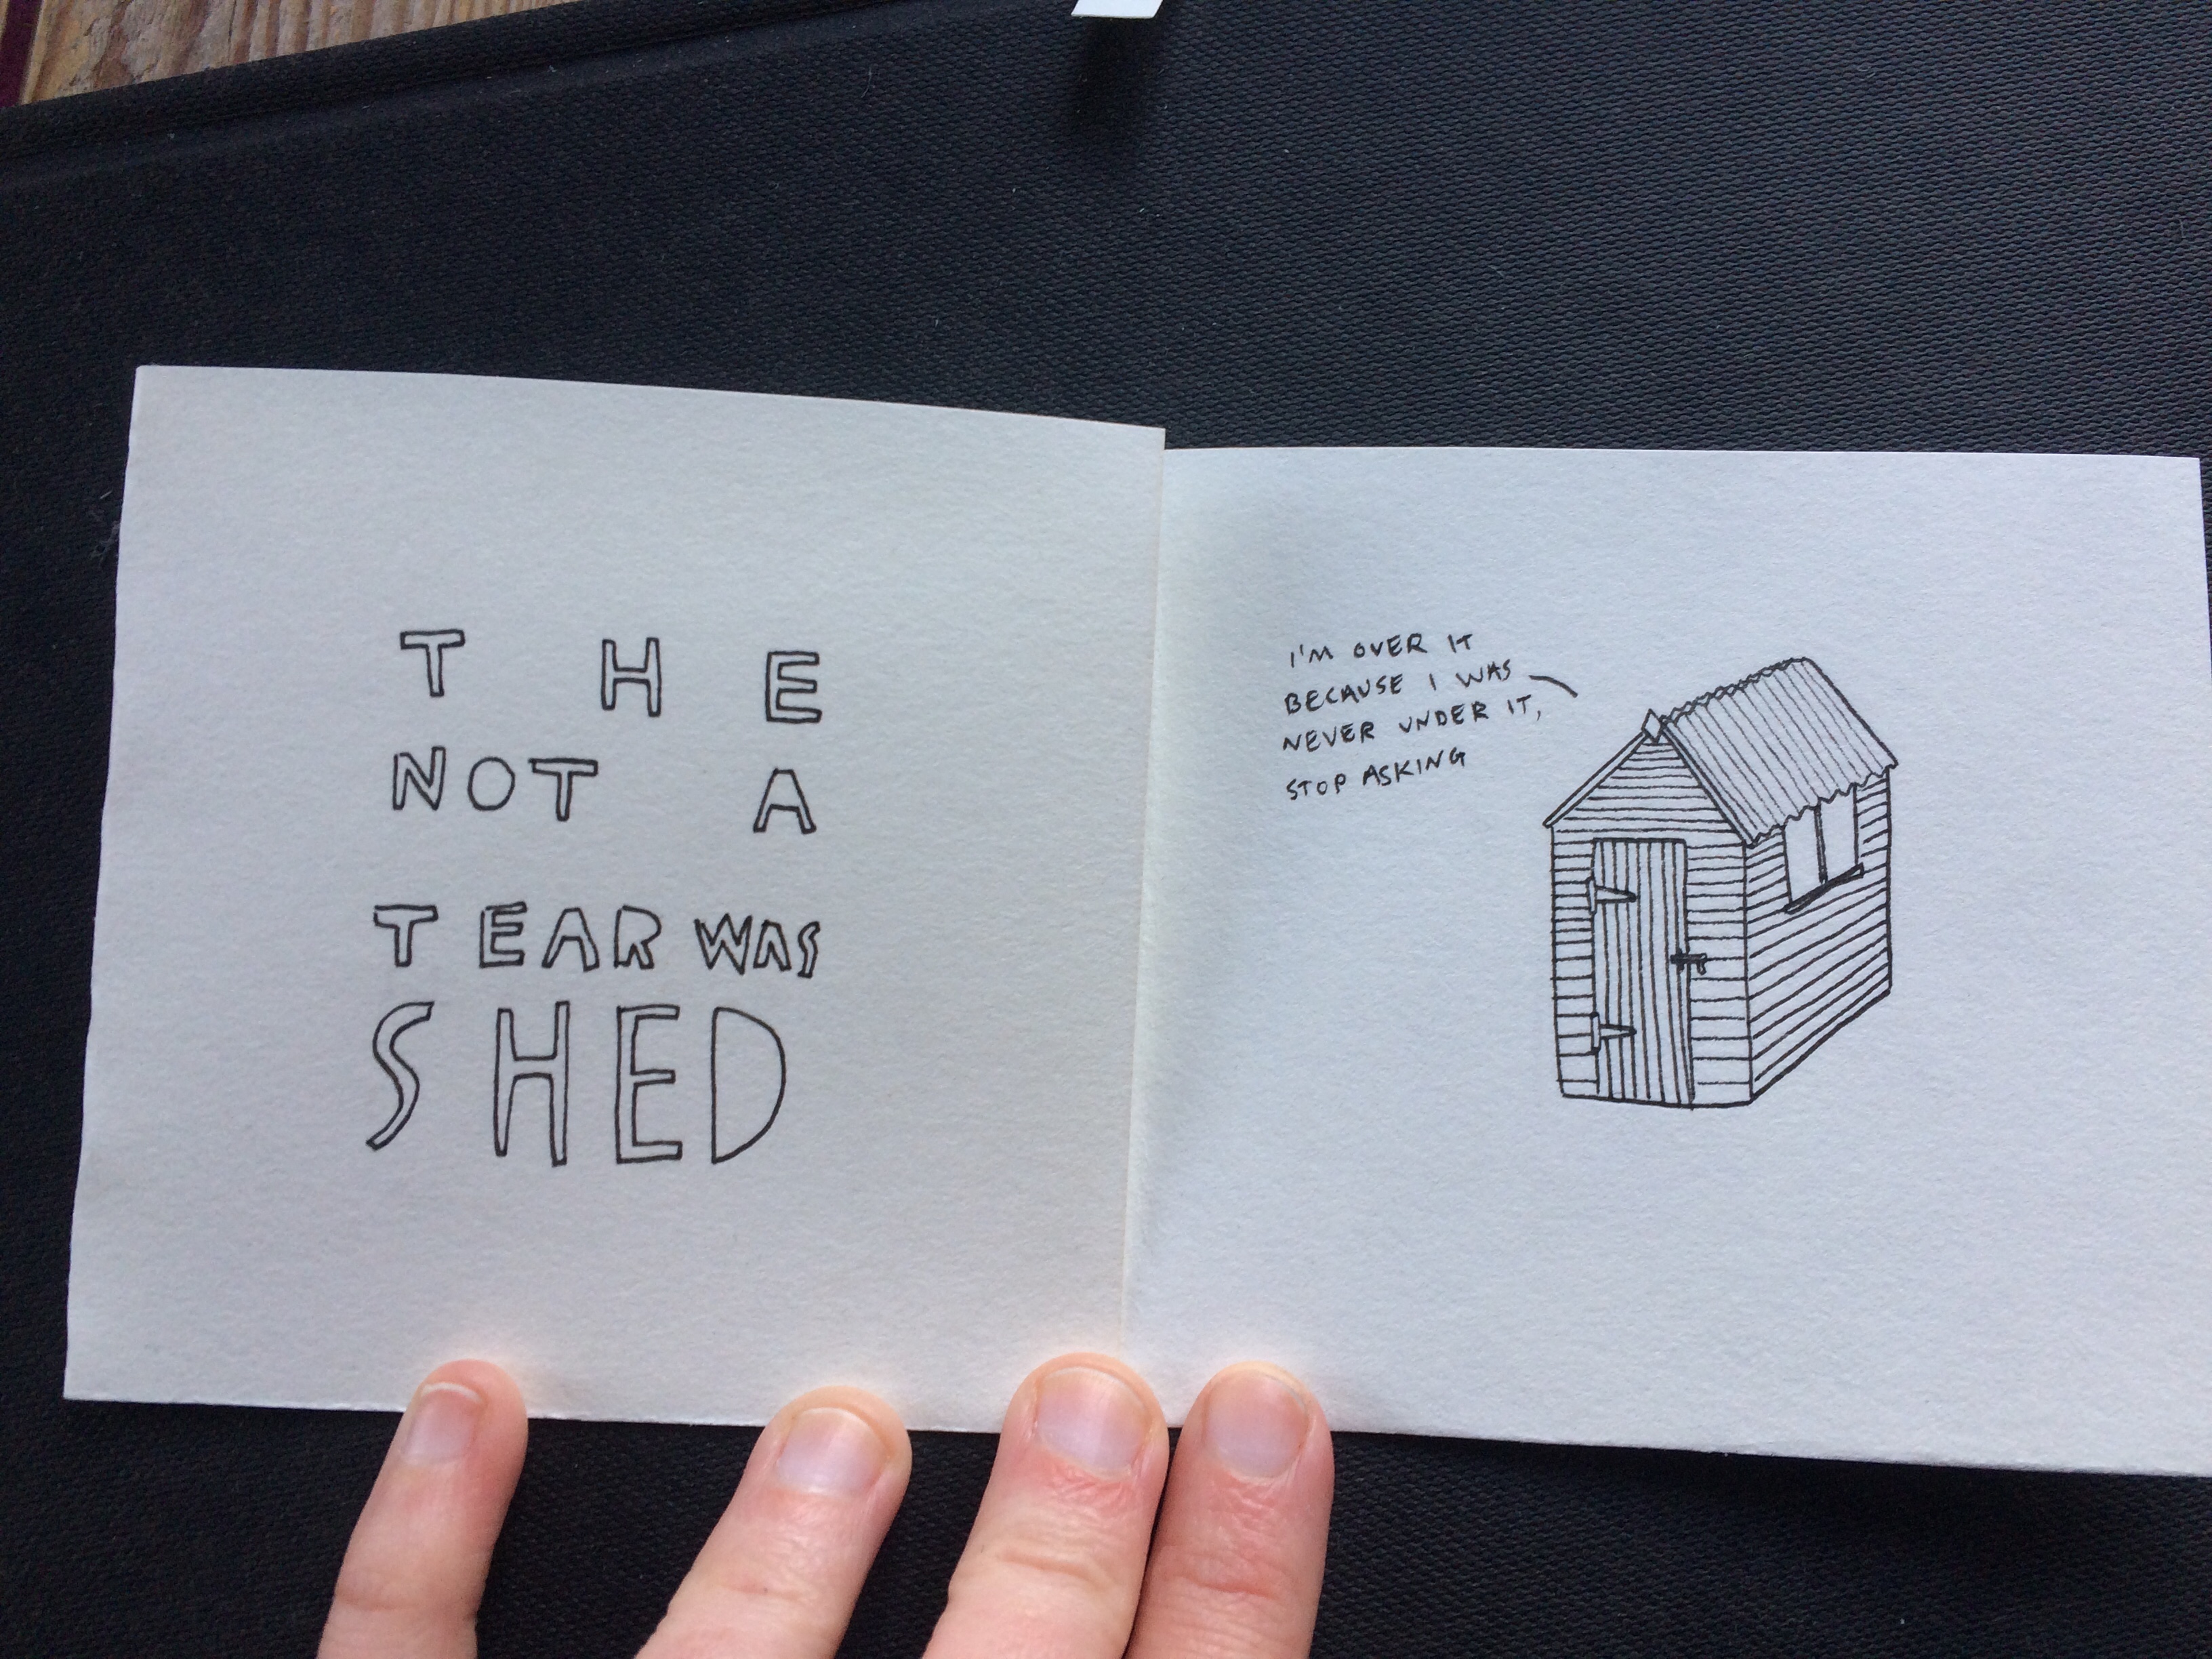 THE
NOT A
TEAR WAS
SHED
I'M OVER IT
BECAUSE I WAS
NEVER UNDER IT,
STOP ASKING